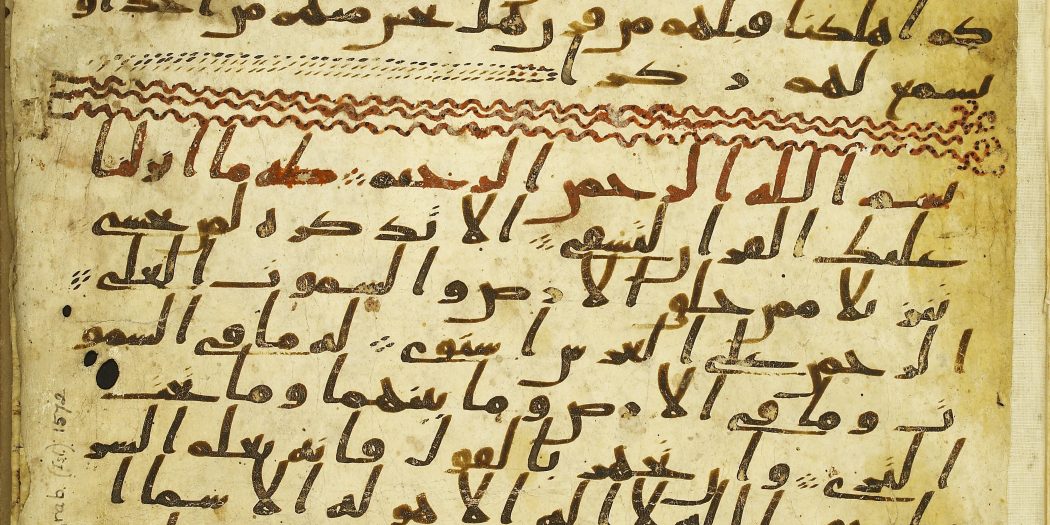 كم اهلكنا قبلهم من قرن هل تحس منهم من احد او
تسمع لهم ركزا
بسم الله الرحمن الرحيم طه ما انزلنا
عليك القران لتشقى الا تذكره لمن يخشى
تنزيلا ممن خلق الارض والسموت العلى
الرحمن على العرش استوى له ما في السمو
ت وما في الارض وما بينهما وما تحت
الثرى وان تجهر بالقول فانه يعلم السر
الله لا اله الا هو له الاسما
rab. (Isl). 1572